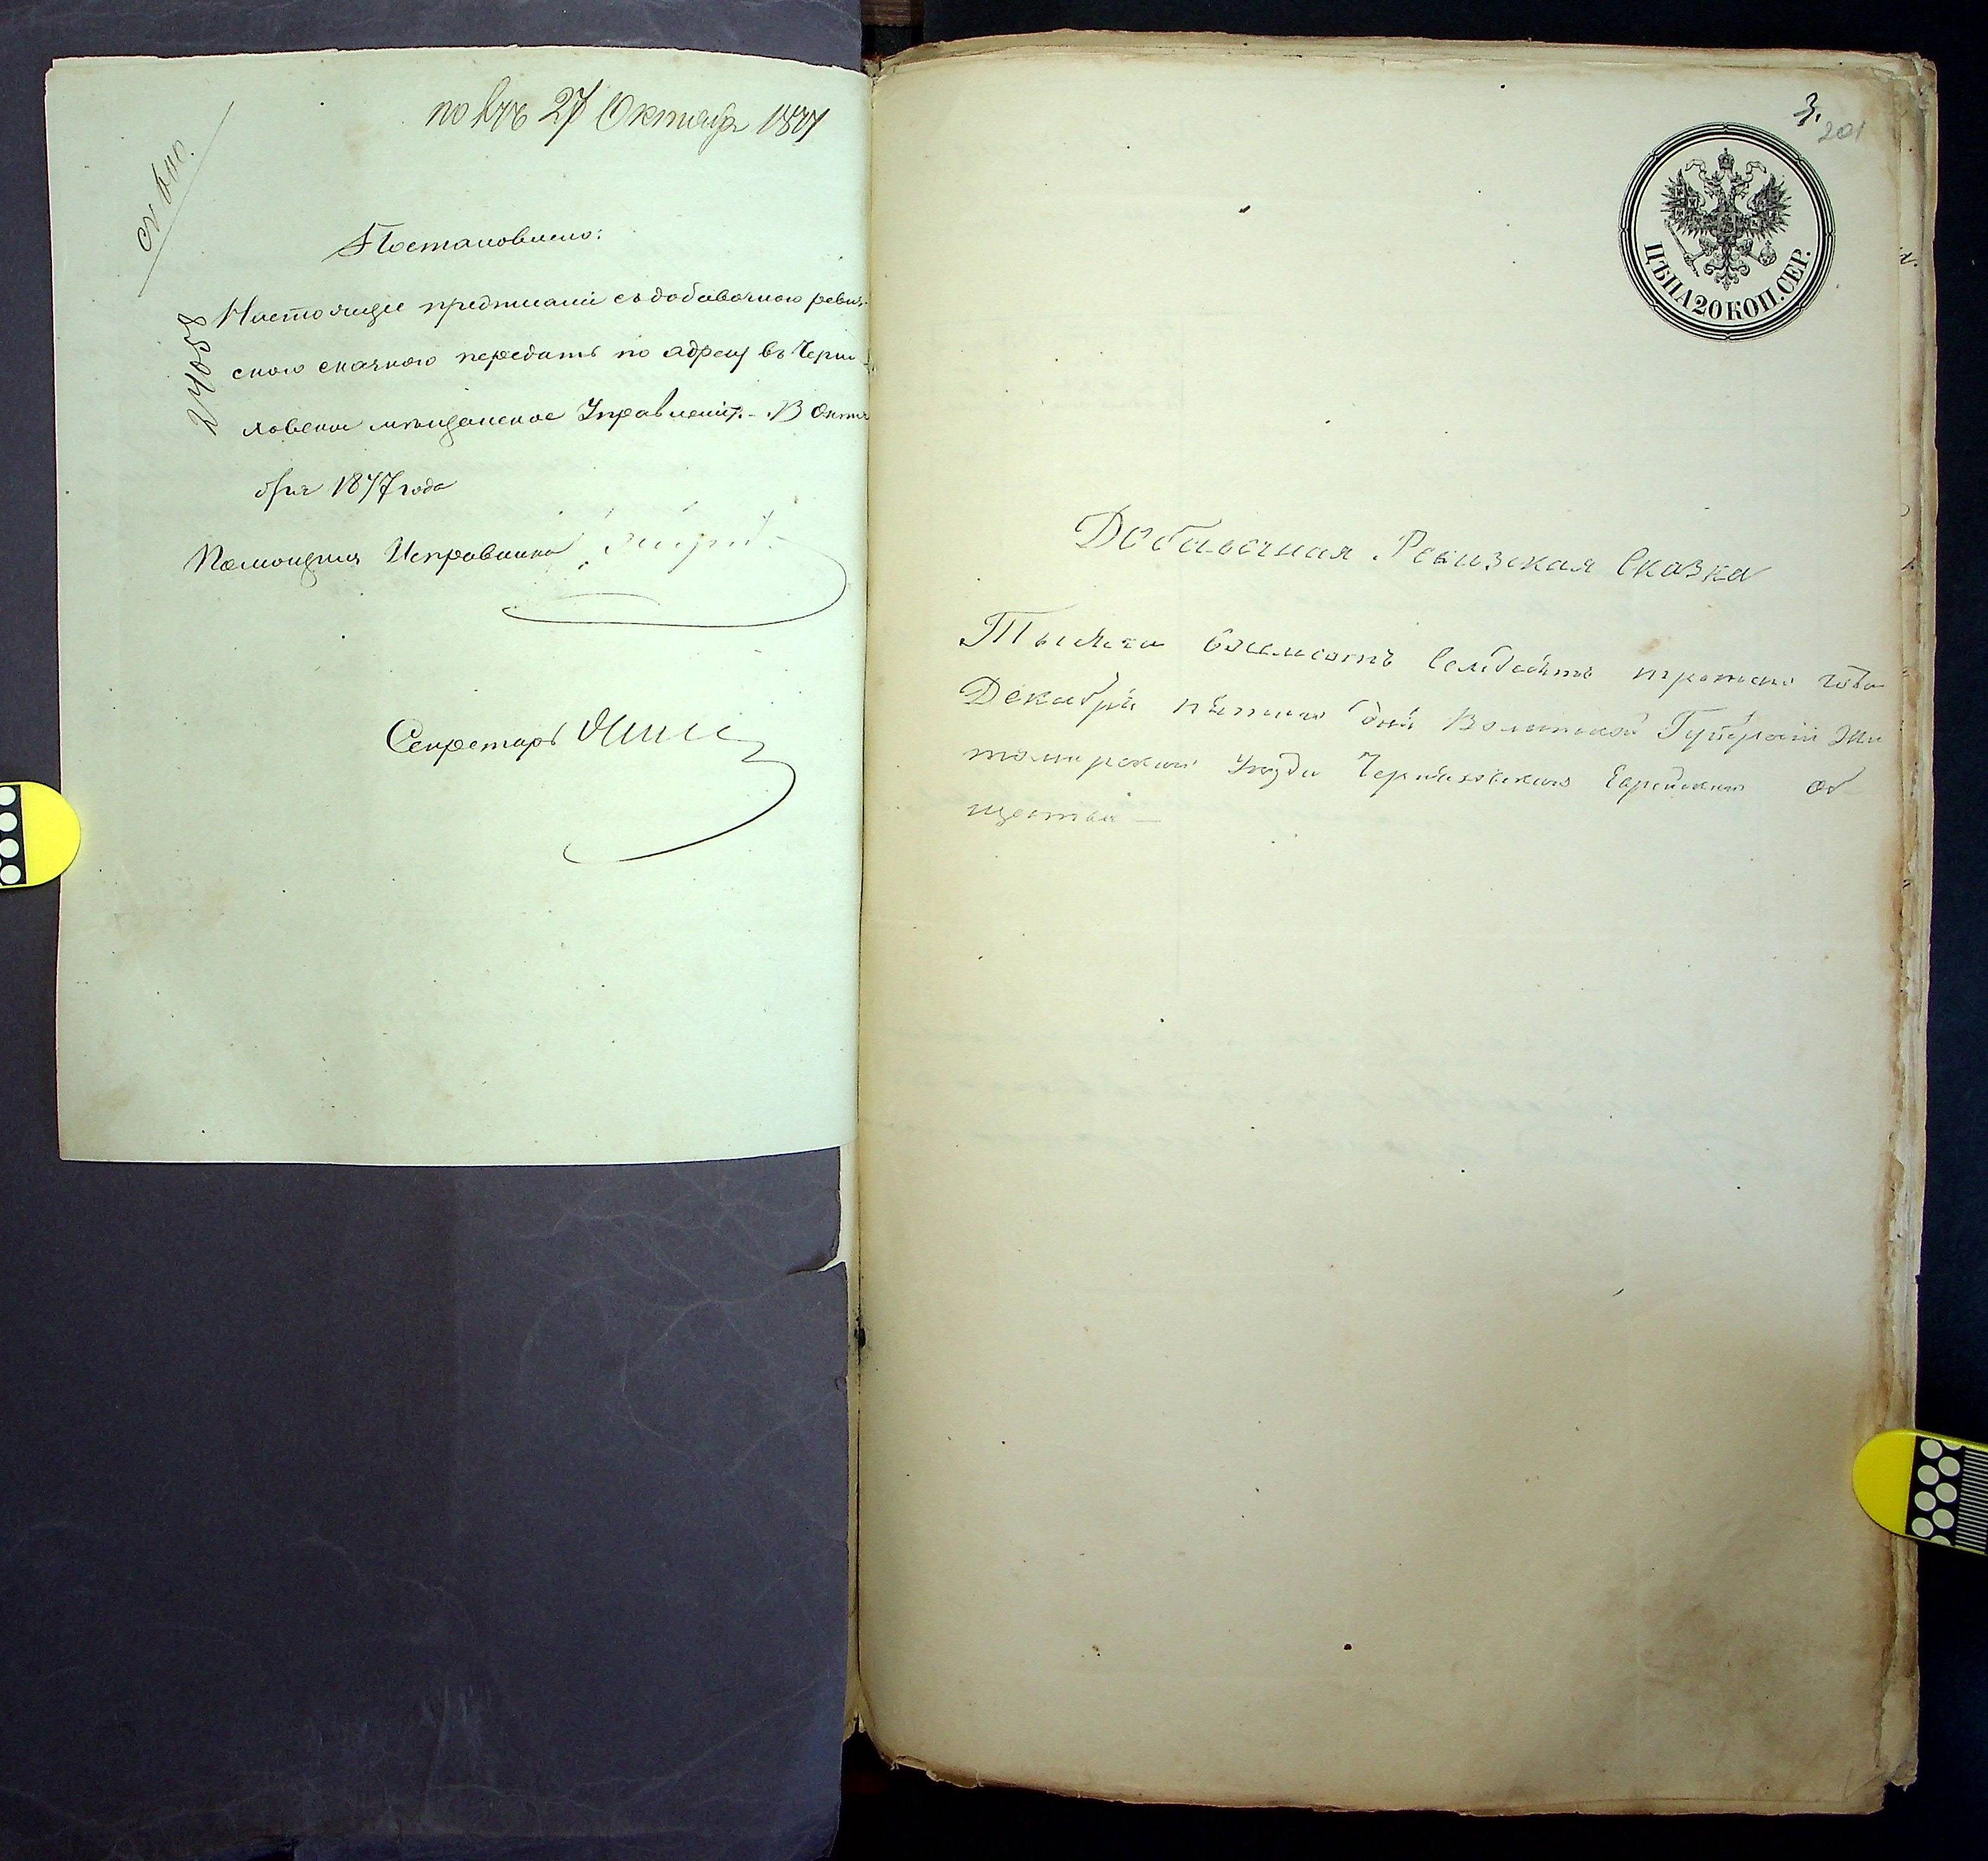 27 Октября 1877
Постановлено:
24058
Настоящее предписание съ добавочною ревиз-
скою сказкою передать по адресу въ Черня-
ховское мѣщанское Управленіе. Октя
бря 1877 года
Помощникъ Исправника
Секретарь
3.
201
ЦѢНА 20 КОП. СЕР.
Добавочная Ревизская Сказка
Тысяча восемсотъ семдесятъ третьяго года
Декабря пятаго дня Волынской Губерніи Жи
томирскаго Уезда Черняховскаго Еврейскаго Об
щества —